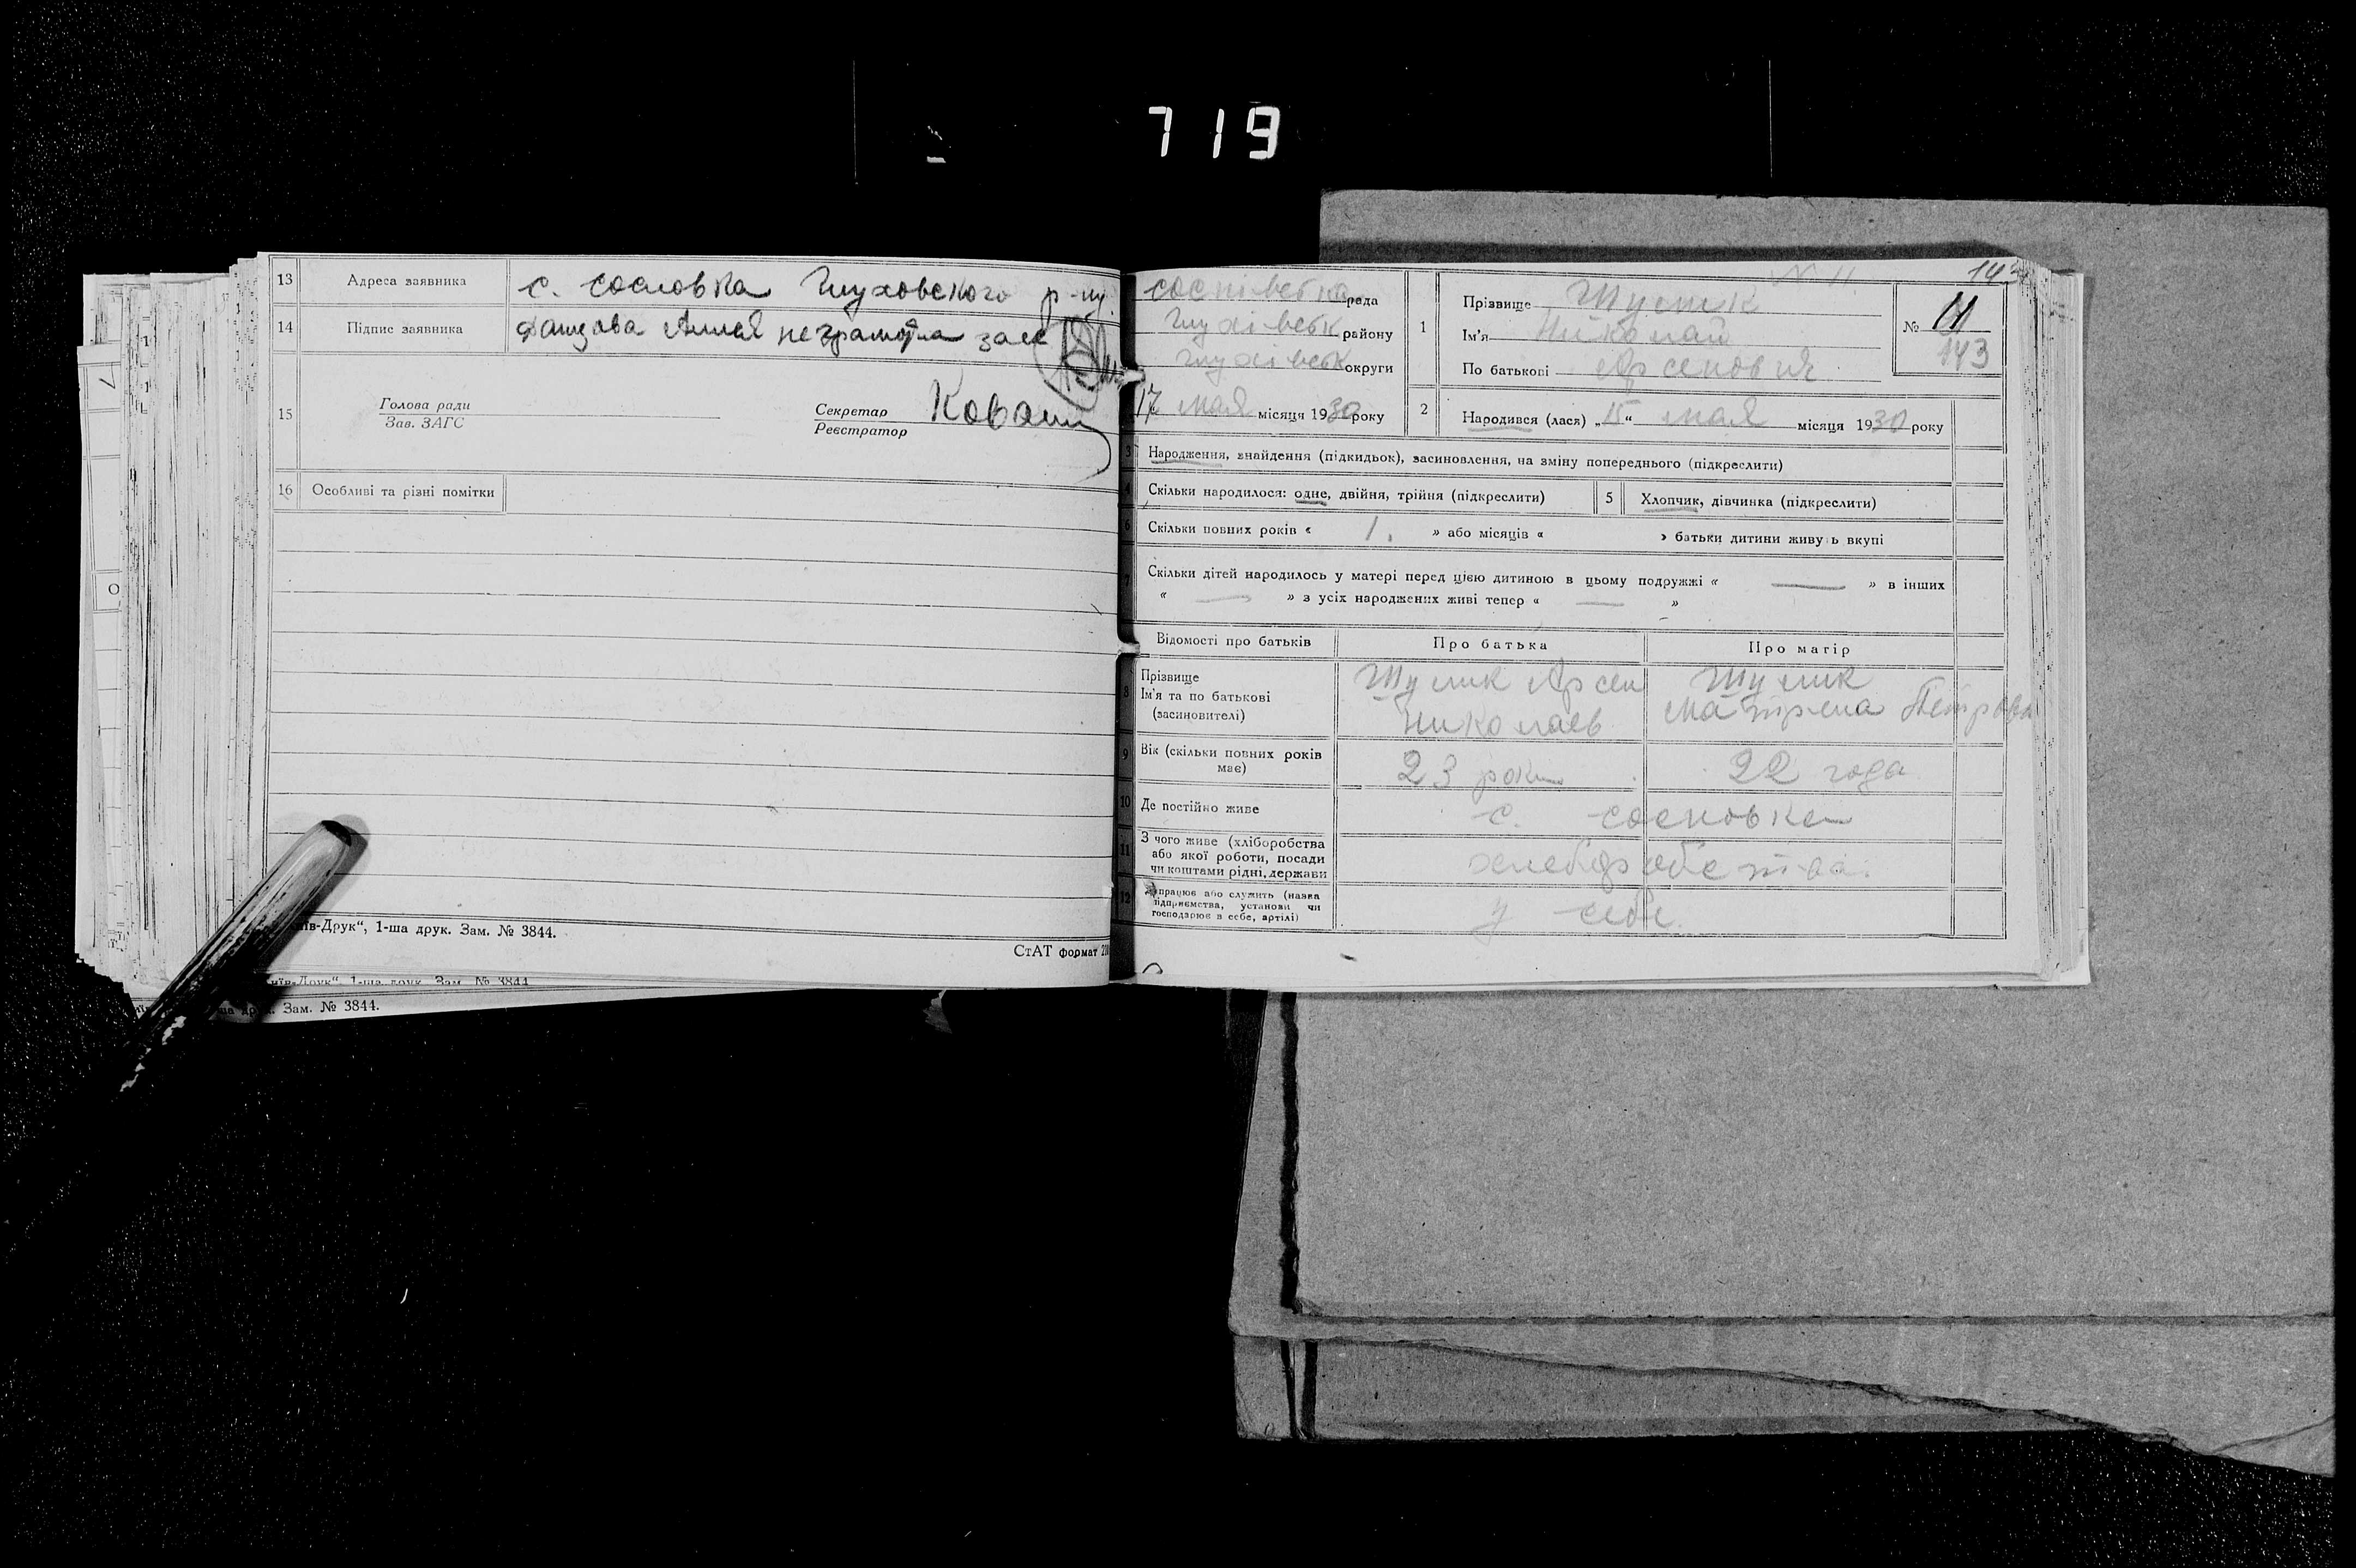 719
13 Адреса заявника с. Сосновка Глуховского р-ну
14 Підпис заявника Анна неграмотна
15 Голова ради
Зав. ЗАГС
Секретар
Реєстратор
16 Особливі та різні помітки
Друк“, 1-ша друк. Зам. № 3844.
СтАТ формат
Зам. № 3844.
№ 11
рада
Глухівськ району
Глухівськ округи
17 мая місяця 1930 року
1
Прізвище Шулик
Ім'я Николай
По батькові Арсенович
№ 11
143
2 Народився (лася) „15“ мая місяця 1930 року
3 Народження, знайдення (підкидьок), засиновлення, на зміну попереднього (підкреслити)
4 Скільки народилося: одне, двійня, трійня (підкреслити) 5 Хлопчик, дівчинка (підкреслити)
6 Скільки повних років « 1. » або місяців « » батьки дитини живуть вкупі
7 Скільки дітей народилось у матері перед цією дитиною в цьому подружжі « — » в інших
« — » з усіх народжених живі тепер « — »
Відомості про батьків Про батька Про матір
8 Прізвище
Ім'я та по батькові
(засиновителі)
Шулик Арсен
Николаев
Шулик
Матрена Петровн
9 Вік (скільки повних років
має)
23 роки 22 года
10 Де постійно живе с. Сосновка
11 З чого живе (хліборобства
або якої роботи, посади
чи коштами рідні, держави
хлеборобства
12 Де працює або служить (назва
підприємства, установи чи
господарює в себе, артілі)
у себе